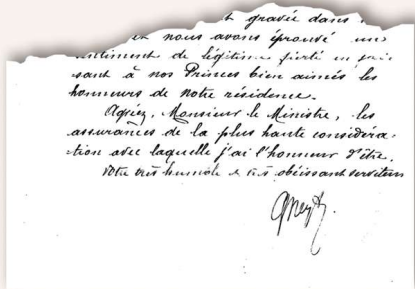 t gravée dans
et nous avons éprouvé un
sentiment de légitime fierté en fai-
sant à nos Princes bien aimés les
honneurs de notre résidence.
Agréez, Monsieur le Ministre, les
assurances de la plus haute considéra-
tion avec laquelle j'ai l'honneur d'être,
Votre très humble et très obéissant serviteur